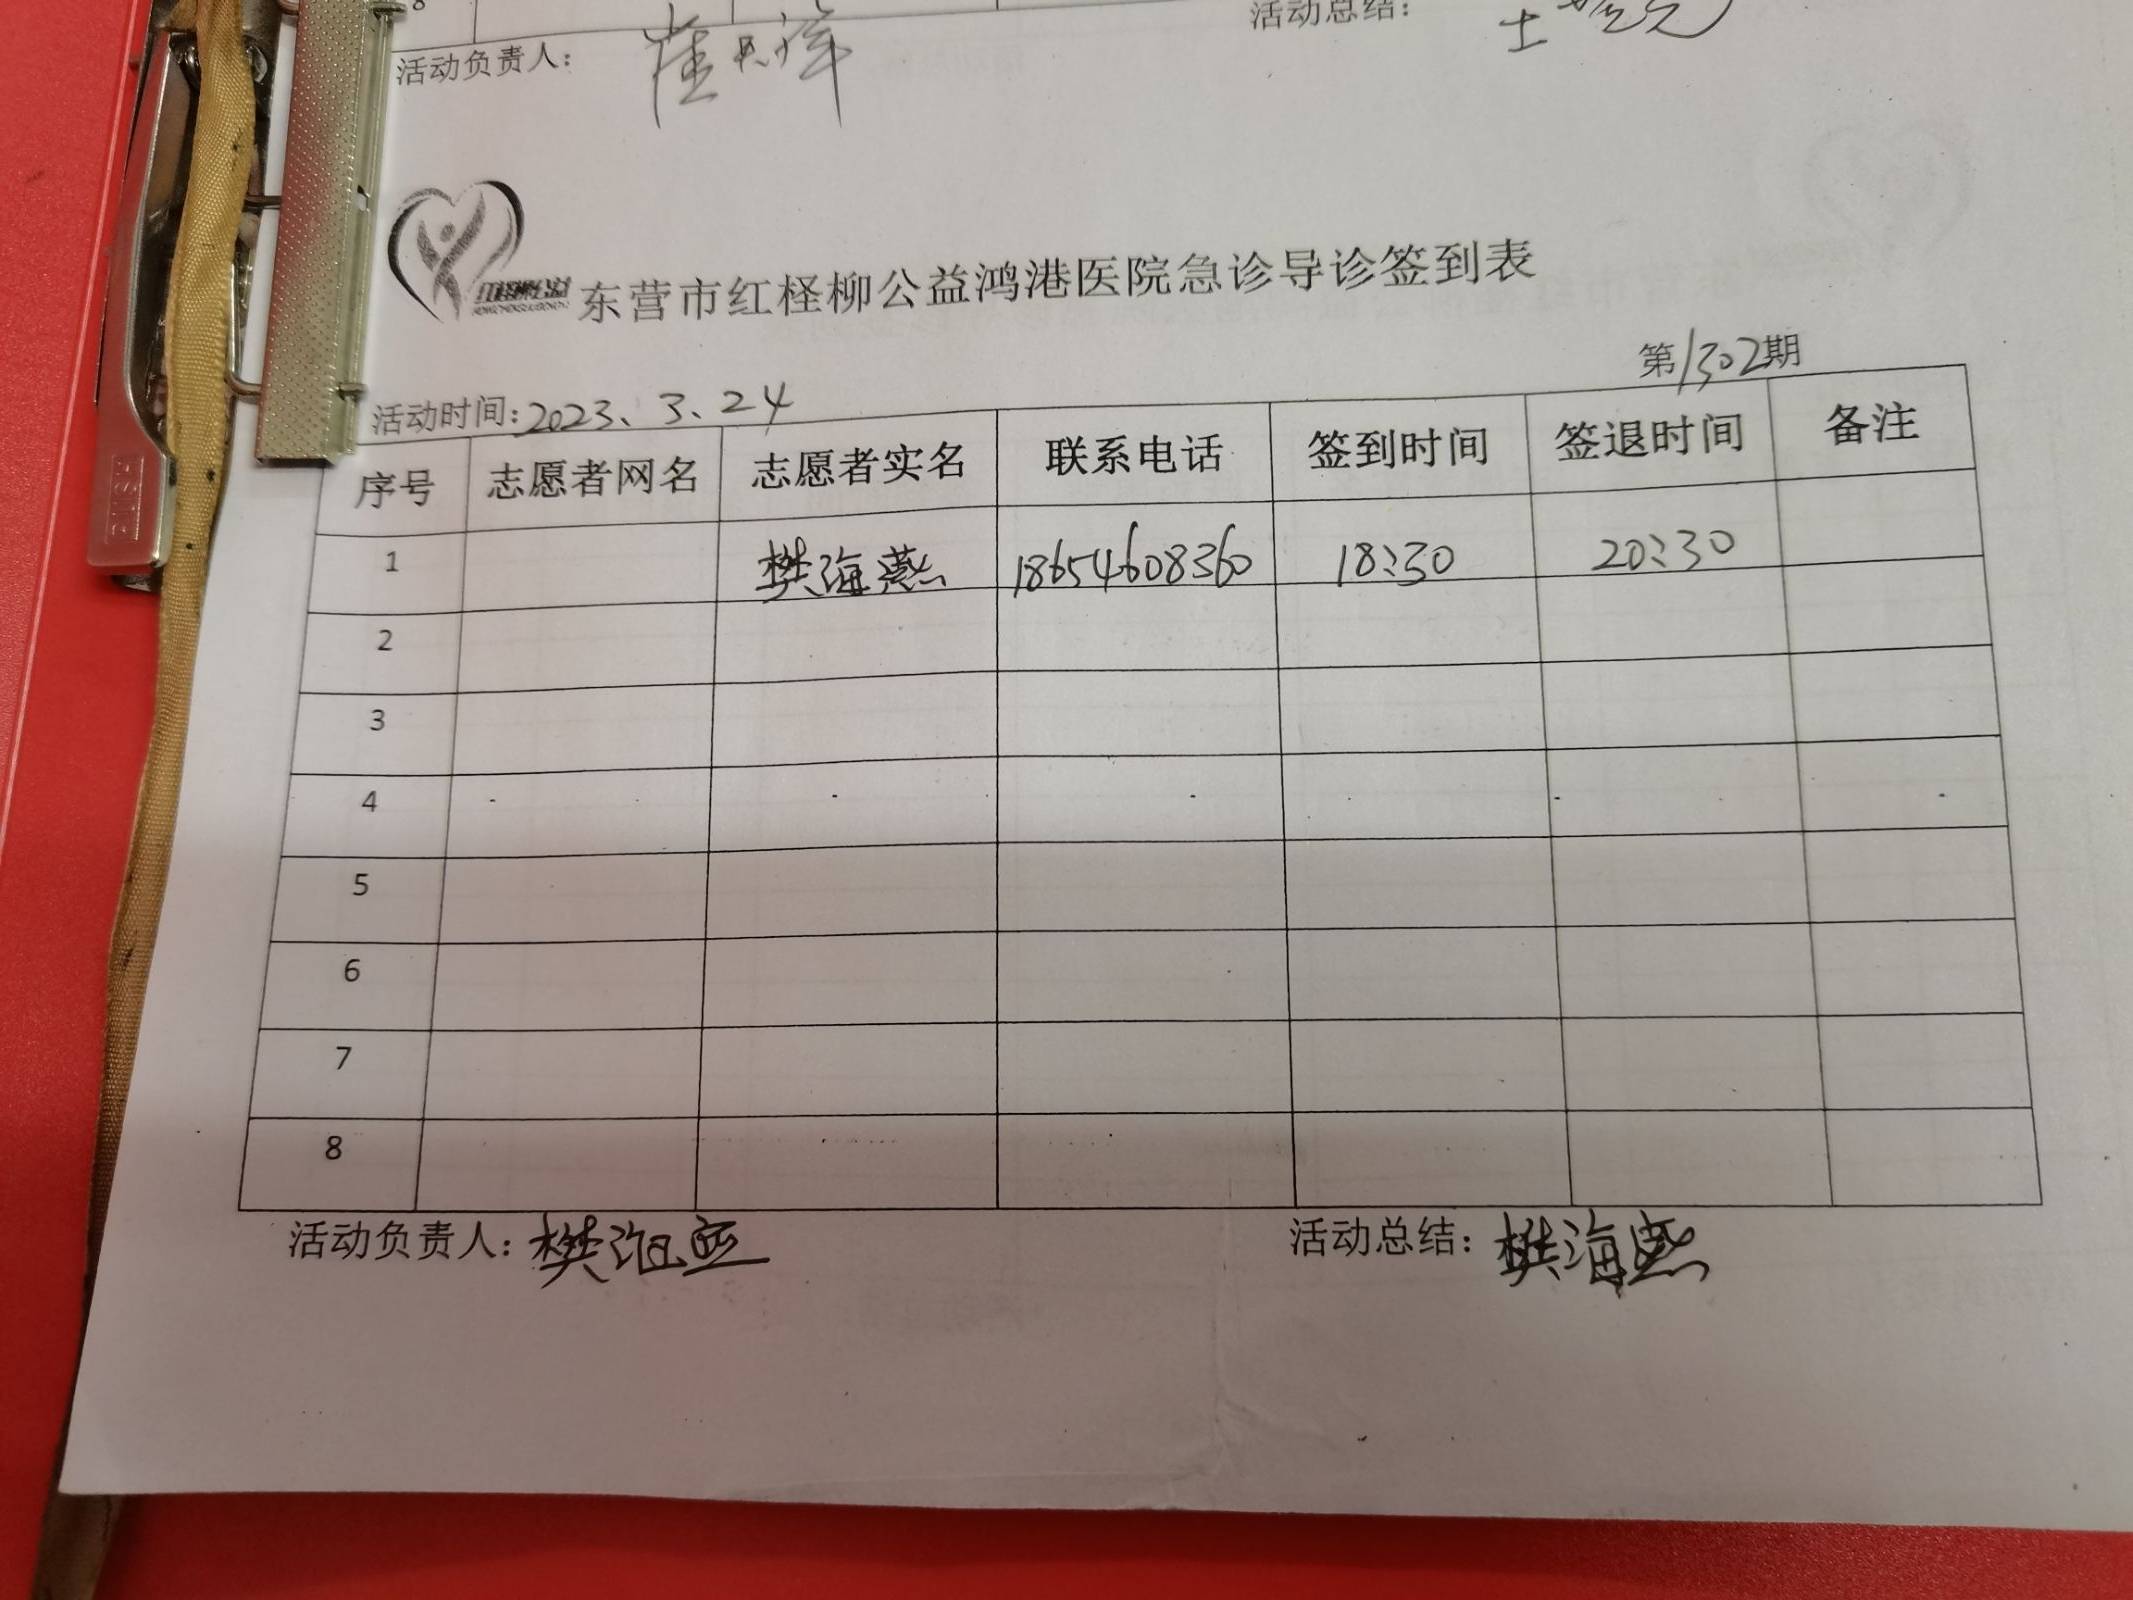 8
活动负责人：
活动总结：
东营市红柽柳公益鸿港医院急诊导诊签到表
第1302期
活动时间:2023、3、24
序号 志愿者网名 志愿者实名 联系电话 签到时间 签退时间 备注
1 樊海燕 18654608360 18:30 20:30
2
3
4
5
6
7
8
活动负责人：樊海燕 活动总结：樊海燕